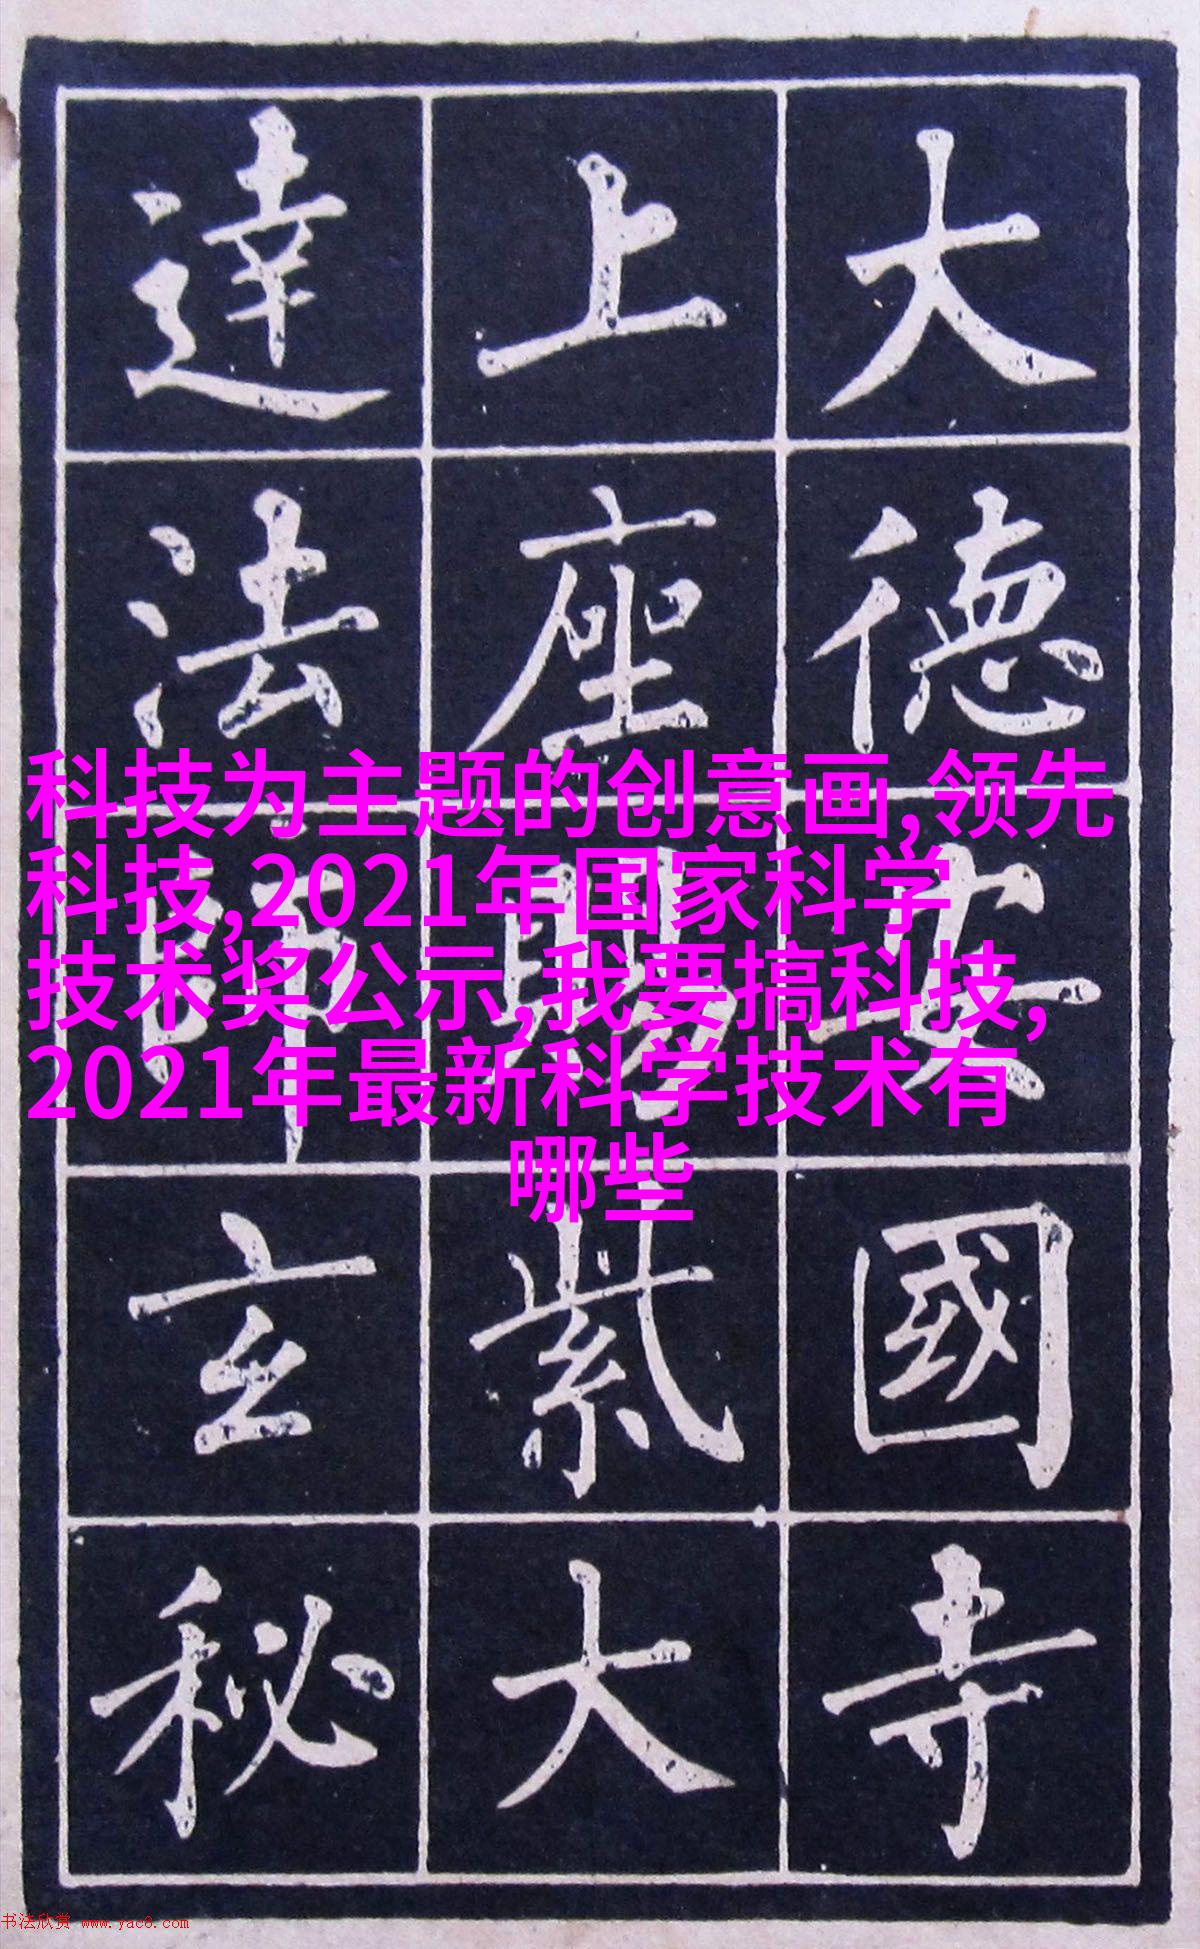 大德安國寺
上座賜紫大
達法師玄秘
科技为主题的创意画,领先
科技,2021年国家科学
技术奖公示,我要搞科技,
2021年最新科学技术有
哪些
书法欣赏 www.yac8.com